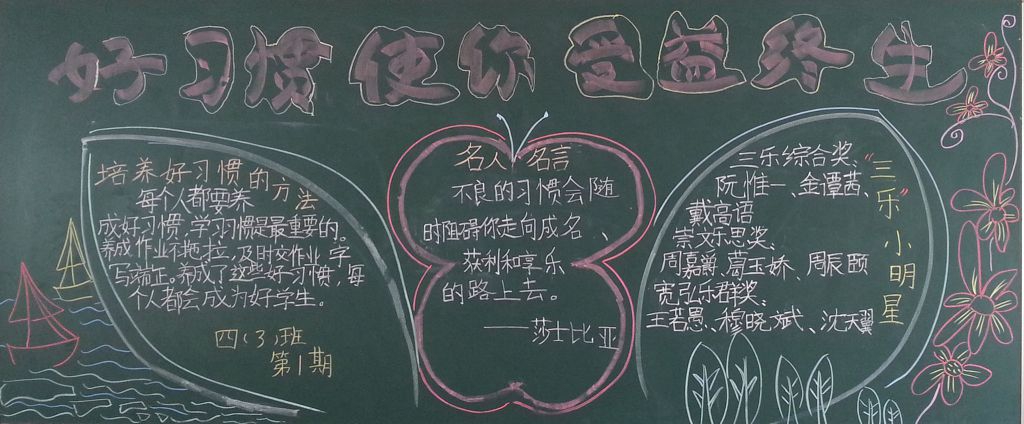 好习惯使你受益终生
培养好习惯的方法
每个人都要养
成好习惯,学习习惯是最重要的。
养成作业不拖拉,及时交作业,字
写端正。养成了这些好习惯,每
个人都会成为好学生。
四(3)班
第1期
名人名言
不良的习惯会随
时阻碍你走向成名、
获利和享乐
的路上去。
——莎士比亚
“三乐”小明星
三乐综合奖:
阮惟一、金谭茜、
戴高语
崇文乐思奖:
周嘉爵、葛玉娇、周辰颐
宽弘乐群奖:
王若愚、穆晓斌、沈天翼